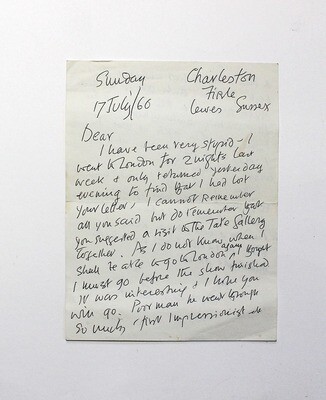 Sunday
17 July/60
Charleston
Firle
Lewes Sussex
Dear
I have been very stupid - I
went to London for 2 nights last
week & only returned yesterday
evening to find that I had lost
your letter, I cannot remember
all you said but do remember that
you suggested a visit to the Tate Gallery
together. As I do not know when I
shall be able to go to London again I thought
I must go before the show finished
It was interesting & I hope you
will go. Poor man he went through
so much, first Impressionist